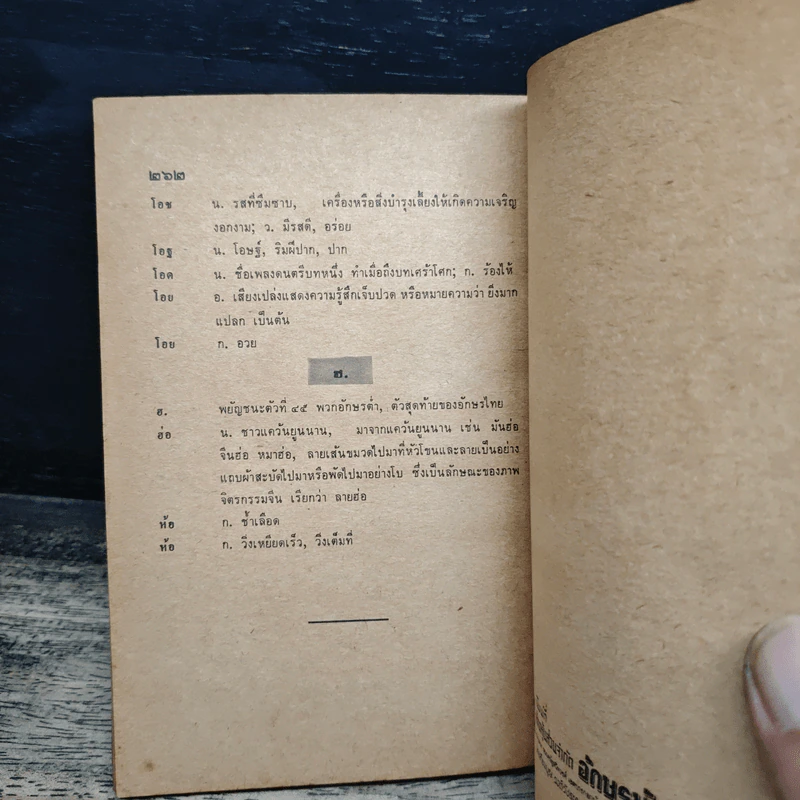 ๒๖๒
โอช น. รสที่ซึมซาบ, เครื่องหรือสิ่งบำรุงเลี้ยงให้เกิดความเจริญ
งอกงาม; ว. มีรสดี, อร่อย
โอฐ น. โอษฐ์, ริมฝีปาก, ปาก
โอด น. ชื่อเพลงดนตรีบทหนึ่ง ทำเมื่อถึงบทเศร้าโศก; ก. ร้องไห้
โอย อ. เสียงเปล่งแสดงความรู้สึกเจ็บปวด หรือหมายความว่า ยิ่งมาก
แปลก เป็นต้น
โอย ก. อวย
ฮ.
ฮ. พยัญชนะตัวที่ ๔๕ พวกอักษรต่ำ, ตัวสุดท้ายของอักษรไทย
ฮ่อ น. ชาวแคว้นยูนนาน, มาจากแคว้นยูนนาน เช่น มันฮ่อ
จีนฮ่อ หมาฮ่อ, ลายเส้นขมวดไปมาที่หัวโขนและลายเป็นอย่าง
แถบผ้าสะบัดไปมาหรือพัดไปมาอย่างโบ ซึ่งเป็นลักษณะของภาพ
จิตรกรรมจีน เรียกว่า ลายฮ่อ
ห้อ ก. ช้ำเลือด
ห้อ ก. วิ่งเหยียดเร็ว, วิ่งเต็มที่